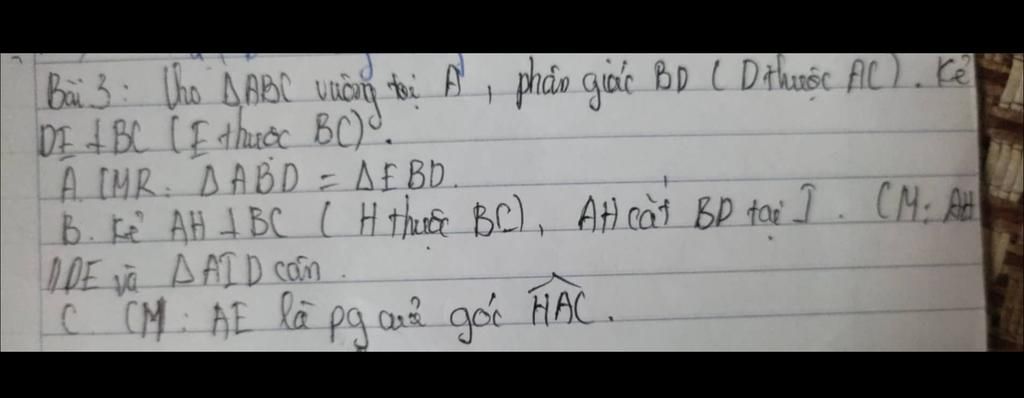 Bài 3: Cho ΔABC vuông tại A, phân giác BD (D thuộc AC). Kẻ
DE ⊥ BC (E thuộc BC).
A. CMR: ΔABD = ΔEBD.
B. Kẻ AH ⊥ BC (H thuộc BC), AH cắt BD tại I. CM: AH
// DE và ΔAID cân.
C. CM: AE là pg của góc HAC.